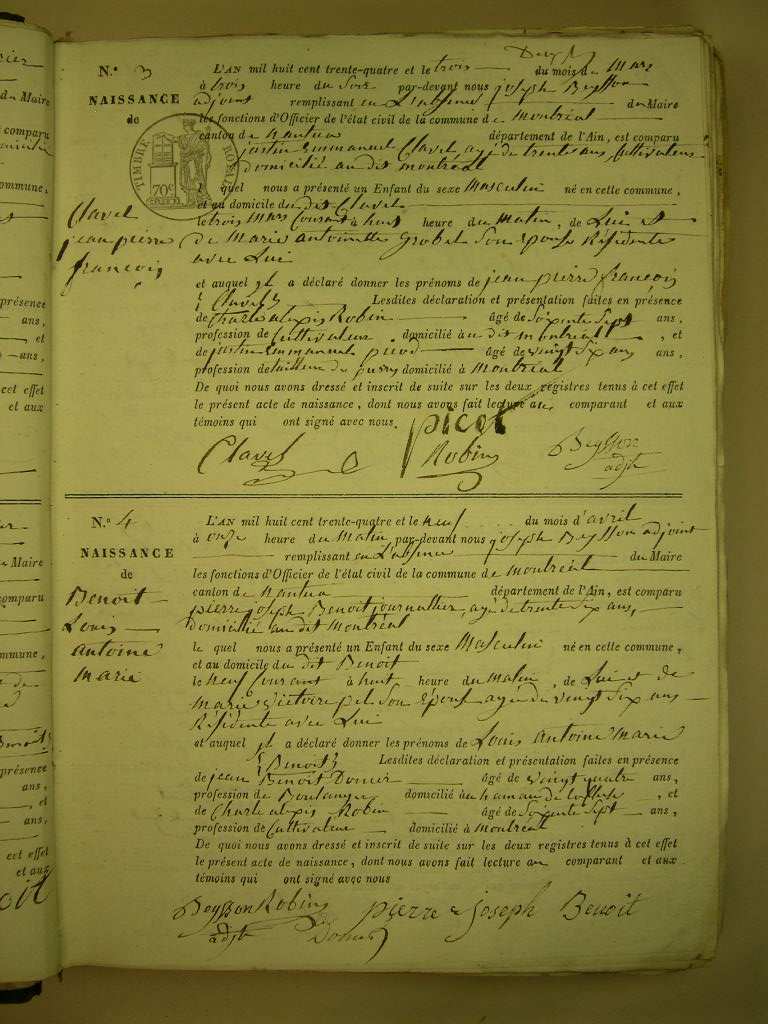 N.º 3
NAISSANCE
de
Clavel
jean pierre
françois
TIMBRE ROYAL
70c
L'AN mil huit cent trente-quatre et le trois du mois de Mars
à trois heure du Soir par-devant nous joseph Beysson
adjoint remplissant en L'absence du Maire
les fonctions d'Officier de l'état civil de la commune de montréal
canton de nantua département de l'Ain, est comparu
justin Emmanuel Clavel agé de trente ans Cultivateur
domicilié au dit montréal
le quel nous a présenté un Enfant du sexe Masculin né en cette commune,
et au domicile du dit Clavel
le trois Mars Courant à huit heure du Matin, de Lui et
de Marie antoinette Grobel Son Epouse Résidente
avec Lui
et auquel il a déclaré donner les prénoms de jean pierre françois
Clavel Lesdites déclaration et présentation faites en présence
de Charle alexis Robin âgé de Soixante Sept ans,
profession de Cultivateur domicilié au dit montréal, et
de justin Emmanuel picod âgé de vingt Six ans ans,
profession de tailleur de pierre domicilié à Montréal
De quoi nous avons dressé et inscrit de suite sur les deux registres tenus à cet effet
le présent acte de naissance, dont nous avons fait lecture au comparant et aux
témoins qui ont signé avec nous.
Clavel Robin Beysson
adjt
N.º 4
NAISSANCE
de
Benoit
Louis
antoine
marie
L'AN mil huit cent trente-quatre et le neuf du mois d'avril
à onze heure du Matin par-devant nous joseph Beysson adjoint
remplissant en L'absence du Maire
les fonctions d'Officier de l'état civil de la commune de montréal
canton de Nantua département de l'Ain, est comparu
pierre joseph Benoit journallier, agé de trente Six ans,
domicilié au dit Montréal
le quel nous a présenté un Enfant du sexe Masculin né en cette commune,
et au domicile du dit Benoit
le neuf Courant à huit heure du Matin, de Lui et de
Marie Victoire Son Epouse agée de vingt Six ans
Résidente avec Lui
et auquel il a déclaré donner les prénoms de Louis Antoine Marie
Benoit Lesdites déclaration et présentation faites en présence
de jean Benoit âgé de vingt quatre ans,
profession de Boulanger domicilié au hamau de, et
de Charle alexis Robin âgé de Soixante Sept ans,
profession de Cultivateur domicilié à Montréal
De quoi nous avons dressé et inscrit de suite sur les deux registres tenus à cet effet
le présent acte de naissance, dont nous avons fait lecture au comparant et aux
témoins qui ont signé avec nous
Beysson Robin pierre joseph Benoit
adjt